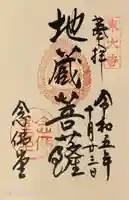 奉拝
東大寺
令和五年
十月廿三日
地蔵菩薩
念佛堂